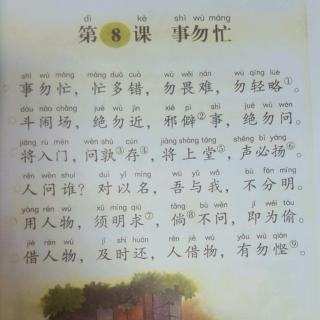 dì kè shì wù máng
第8课 事勿忙
shì wù máng máng duō cuò wù wèi nán wù qīng lüè
事勿忙，忙多错，勿畏难，勿轻略①。
dòu nào chǎng jué wù jìn xié pì shì jué wù wèn
斗闹场，绝勿近，邪僻②事，绝勿问。
jiāng rù mén wèn shú cún jiāng shàng táng shēng bì yáng
将入门，问孰③存④，将上堂⑤，声必扬⑥。
rén wèn shuí duì yǐ míng wú yǔ wǒ bù fēn míng
人问谁？对以名，吾与我，不分明。
yòng rén wù xū míng qiú tǎng bù wèn jí wéi tōu
用人物，须明求⑦，倘⑧不问，即为偷。
jiè rén wù jí shí huán rén jiè wù yǒu wù qiān
借人物，及时还，人借物，有勿悭⑨。